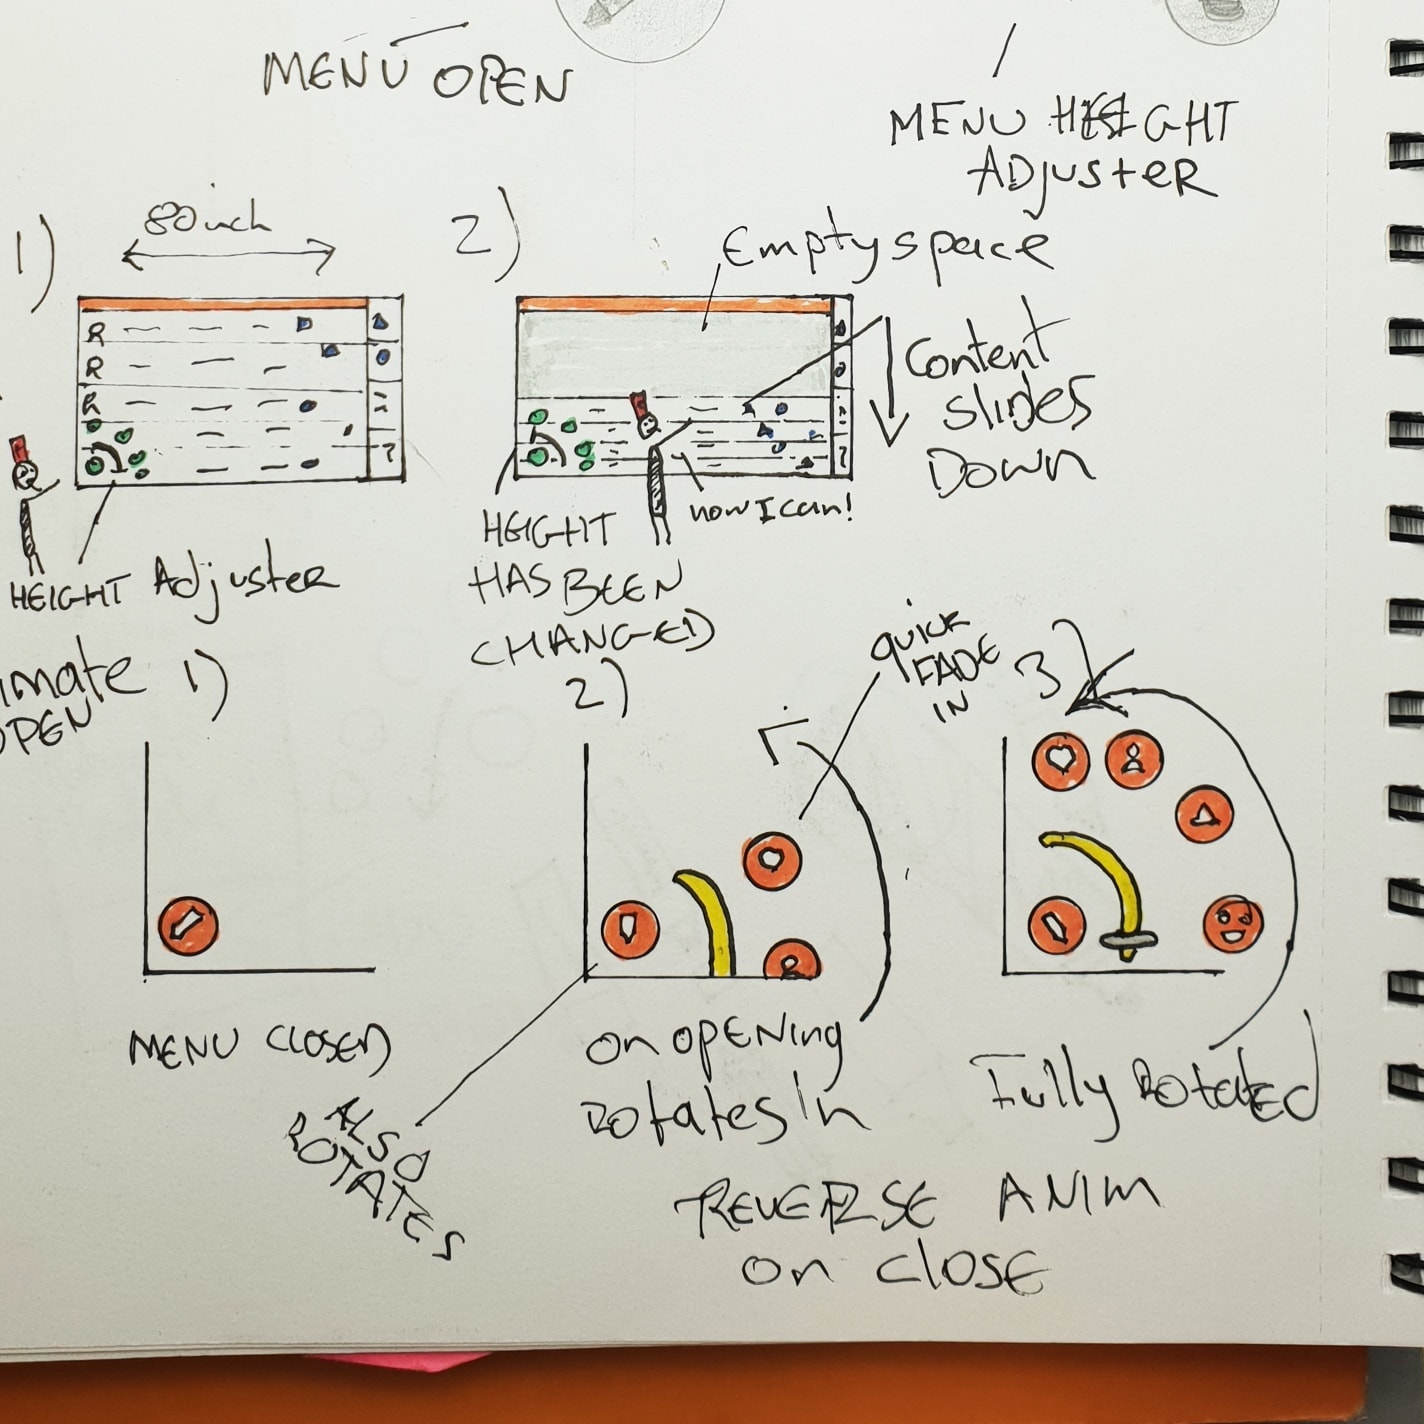 MENU OPEN
MENU HEIGHT
ADJUSTER
1)
80 inch
2)
Empty space
R
R
R
?
?
Content
slides
DOWN
now I can!
HEIGHT Adjuster
HEIGHT
HAS BEEN
CHANGED
imate
OPEN
1)
2)
QUICK
FADE
IN
3
MENU CLOSED
ALSO
ROTATES
On OPENing
ROtates in
Fully ROtatED
REVERSE ANIM
on close